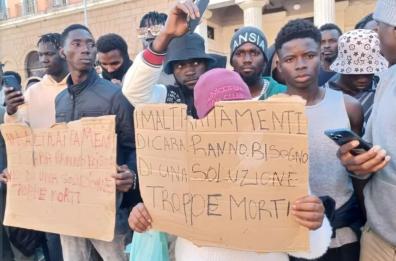 ANSIH
IMALTRATTAMENTI
DI CARA RANNO BISOGNO
DI UNA SOLUZIONE
TROPPE MORTI
IMALTRATTAMENTI
DI CARA RANNO BISOGNO
DI UNA SOLUZIONE
TROPPE MORTI